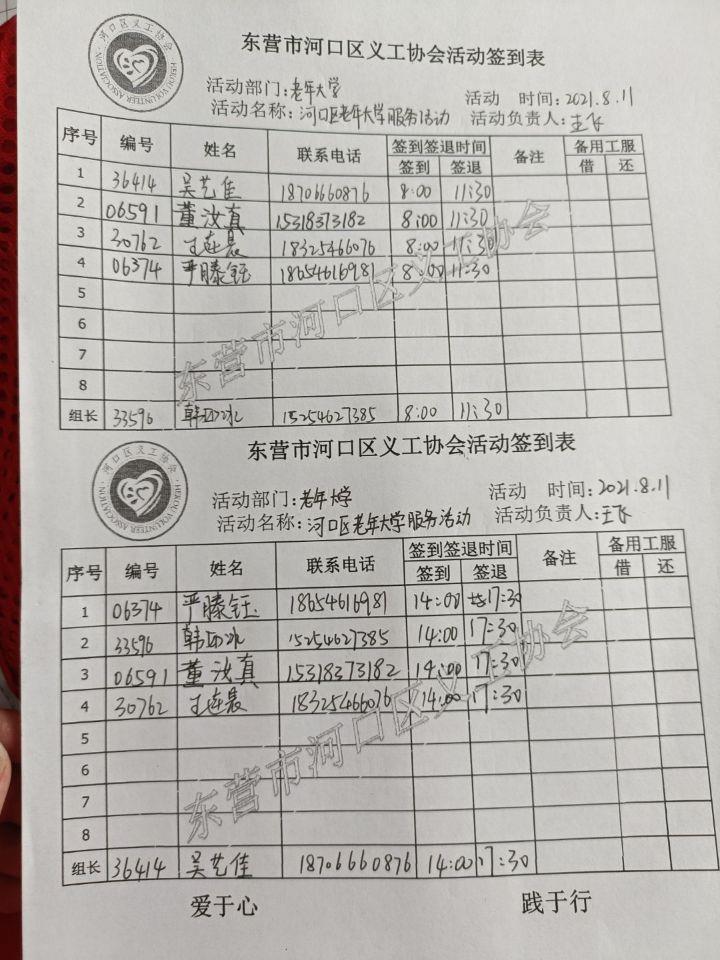 东营市河口区义工协会活动签到表
河口区义工协会
HEKOU VOLUNTEER ASSOCIATION
活动部门:老年大学 活动 时间:2021.8.11
活动名称:河口区老年大学服务活动 活动负责人:王飞
序号 编号 姓名 联系电话 签到签退时间 备注 备用工服
签到 签退 借 还
1 36414 吴艺佳 18706660876 8:00 11:30
2 06591 董汝真 15318373182 8:00 11:30
3 30762 王连晨 18325466076 8:00 11:30
4 06374 严滕钰 18654616981 8:00 11:30
5
6
7
8
组长 33596 韩冰 15254627385 8:00 11:30
东营市河口区义工协会
东营市河口区义工协会活动签到表
河口区义工协会
HEKOU VOLUNTEER ASSOCIATION
活动部门:老年大学 活动 时间:2021.8.11
活动名称:河口区老年大学服务活动 活动负责人:王飞
序号 编号 姓名 联系电话 签到签退时间 备注 备用工服
签到 签退 借 还
1 06374 严滕钰 18654616981 14:00 17:30
2 33596 韩冰 15254627385 14:00 17:30
3 06591 董汝真 15318373182 14:00 17:30
4 30762 王连晨 18325466076 14:00 17:30
5
6
7
8
组长 36414 吴艺佳 18706660876 14:00 17:30
东营市河口区义工协会
爱于心 践于行